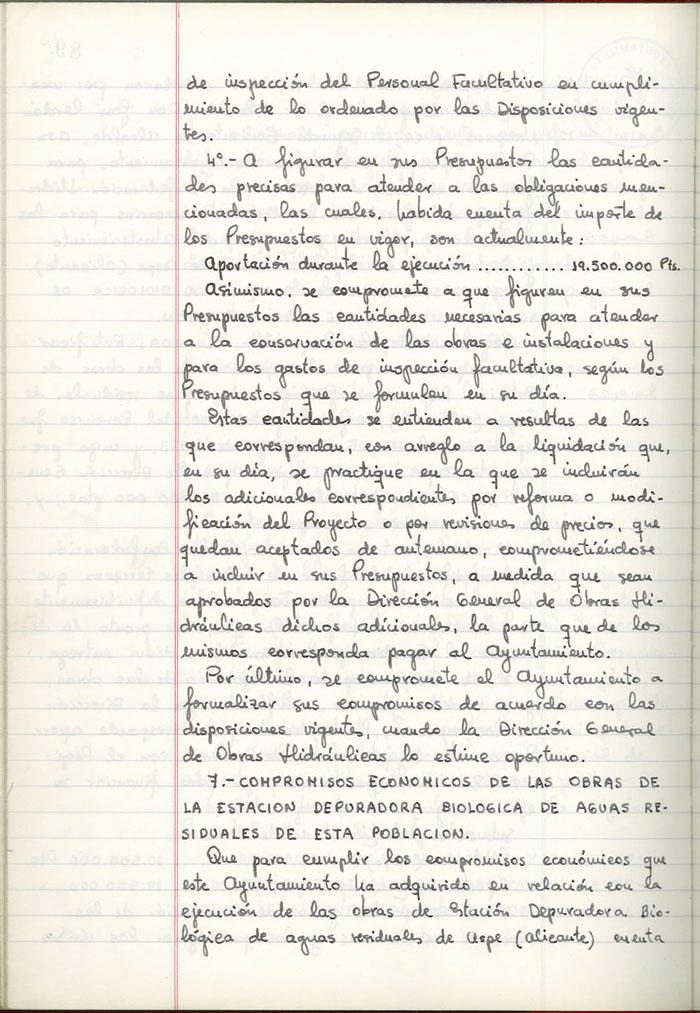 de inspección del Personal Facultativo en cumpli-
miento de lo ordenado por las Disposiciones vigen-
tes.
4º.- A figurar en sus Presupuestos las cantida-
des precisas para atender a las obligaciones men-
cionadas, las cuales, habida cuenta del importe de
los Presupuestos en vigor, son actualmente:
Aportación durante la ejecución ............ 19.500.000 Pts.
Asimismo, se compromete a que figuren en sus
Presupuestos las cantidades necesarias para atender
a la conservación de las obras e instalaciones y
para los gastos de inspección facultativa, según los
Presupuestos que se formulen en su día.
Estas cantidades se entienden a resultas de las
que correspondan, con arreglo a la liquidación que,
en su día, se practique en la que se incluirán
los adicionales correspondientes por reforma o modi-
ficación del Proyecto o por revisiones de precios, que
quedan aceptados de antemano, comprometiéndose
a incluir en sus Presupuestos, a medida que sean
aprobados por la Dirección General de Obras Hi-
dráulicas dichos adicionales, la parte que de los
mismos corresponda pagar al Ayuntamiento.
Por último, se compromete el Ayuntamiento a
formalizar sus compromisos de acuerdo con las
disposiciones vigentes, cuando la Dirección General
de Obras Hidráulicas lo estime oportuno.
7.- COMPROMISOS ECONOMICOS DE LAS OBRAS DE
LA ESTACION DEPURADORA BIOLOGICA DE AGUAS RE-
SIDUALES DE ESTA POBLACION.
Que para cumplir los compromisos económicos que
este Ayuntamiento ha adquirido en relación con la
ejecución de las obras de Estación Depuradora Bio-
lógica de aguas residuales de Aspe (Alicante) cuenta